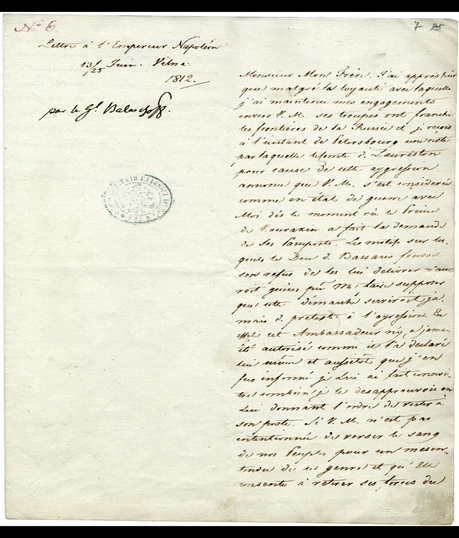 № 6
7
Lettre à l'Empereur Napoléon
13/25 Juin. Vilna
1812.
par le Gl. Balachoff.
Monsieur Mon Frère. J'ai appris hier
que malgré la loyauté avec laquelle
j'ai maintenu mes engagements
envers V. M. ses troupes ont franchi
les frontières de la Russie et je reçois
à l'instant de Pétersbourg une note
par laquelle le Comte de Lauriston
pour cause de cette aggression
annonce que V. M. s'est considérée
comme en état de guerre avec
Moi dès le moment où le Prince
de Kourakin a fait la demande
de ses Passeports. Les motifs sur les-
quels le Duc de Bassano fondoit
son refus de les lui délivrer n'au-
roit guères pu Me faire supposer
que cette démarche serviroit ja-
mais de prétexte à l'agression. En
effet cet Ambassadeur n'y a jamais
été autorisé comme il l'a declaré
lui même et aussitôt que j'en
fus informé je Lui ai fait connoi-
tre combien je le desapprouvois en
Lui donnant l'ordre de rester à
son poste. Si V. M. n'est pas
intentionnée de verser le sang
de nos Peuples pour un mesen-
tendu de ce genre et qu'Elle
consente à retirer ses troupes du